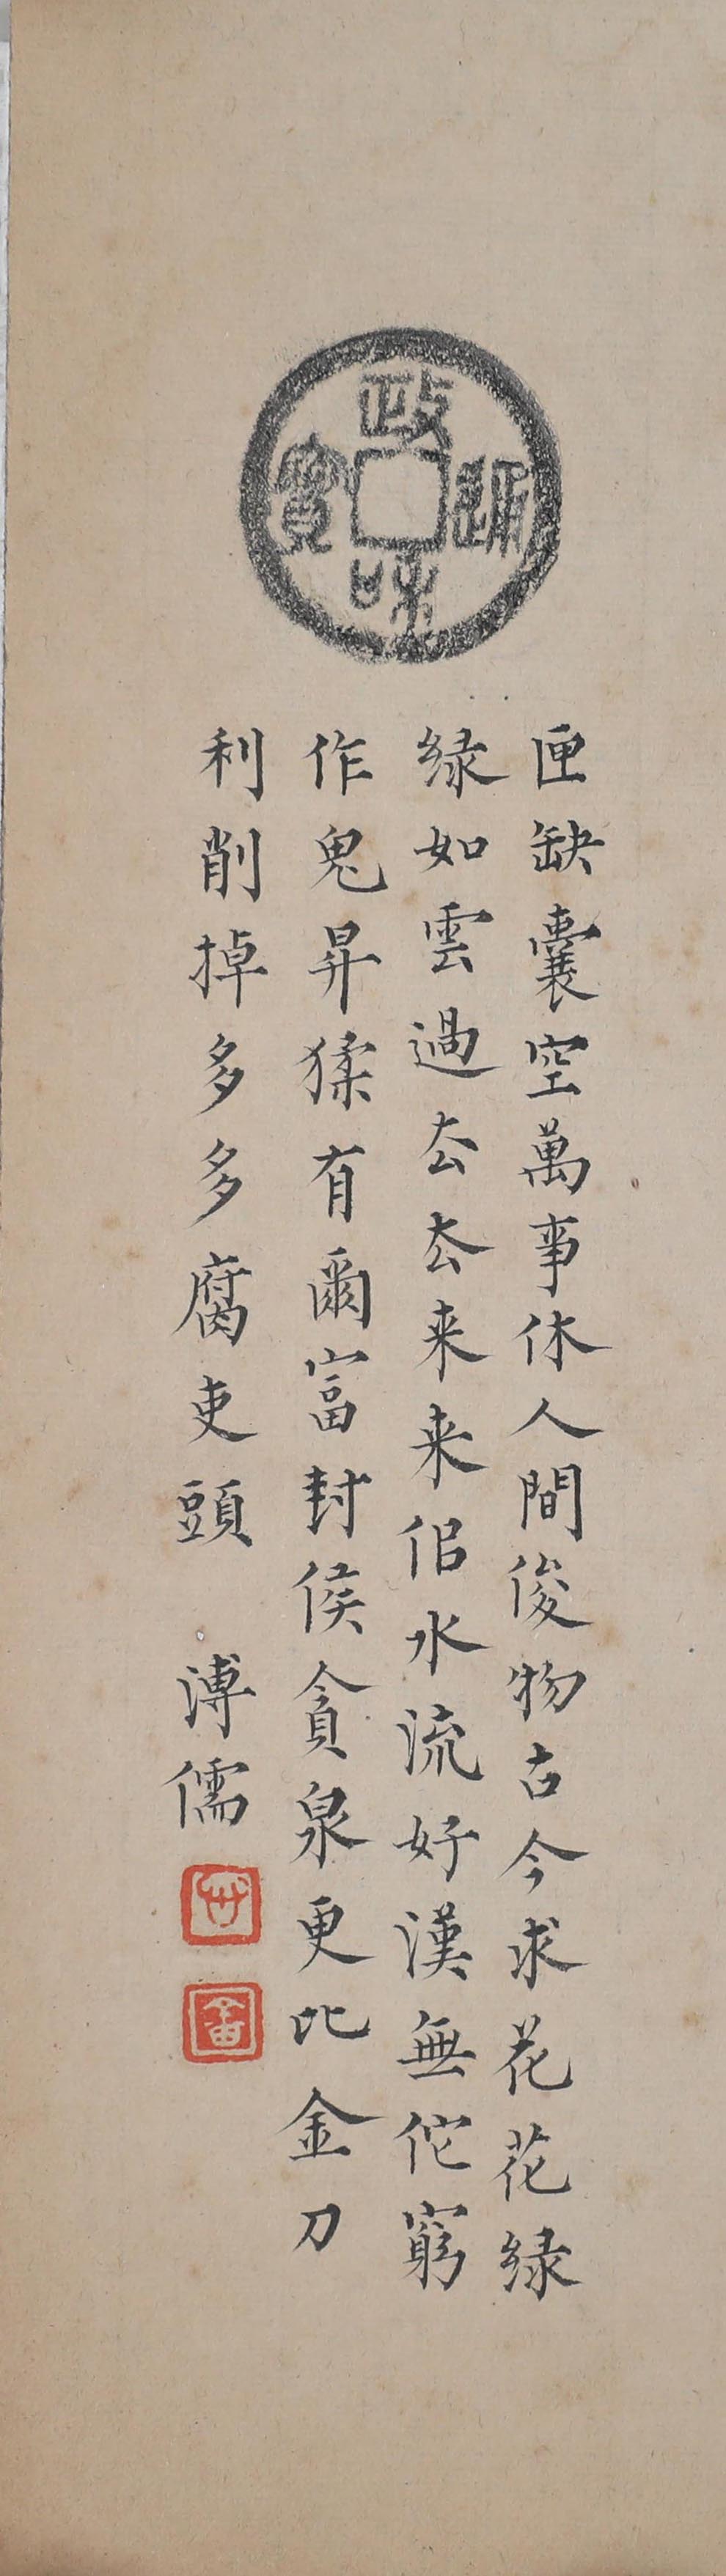 政和通寶
匣缺囊空萬事休人間俊物古今求花花緑
緑如雲過厺厺来来佀水流好漢無佗窮
作鬼昇猱有爾富封侯貪泉更比金刀
利削掉多多腐吏頭
溥儒